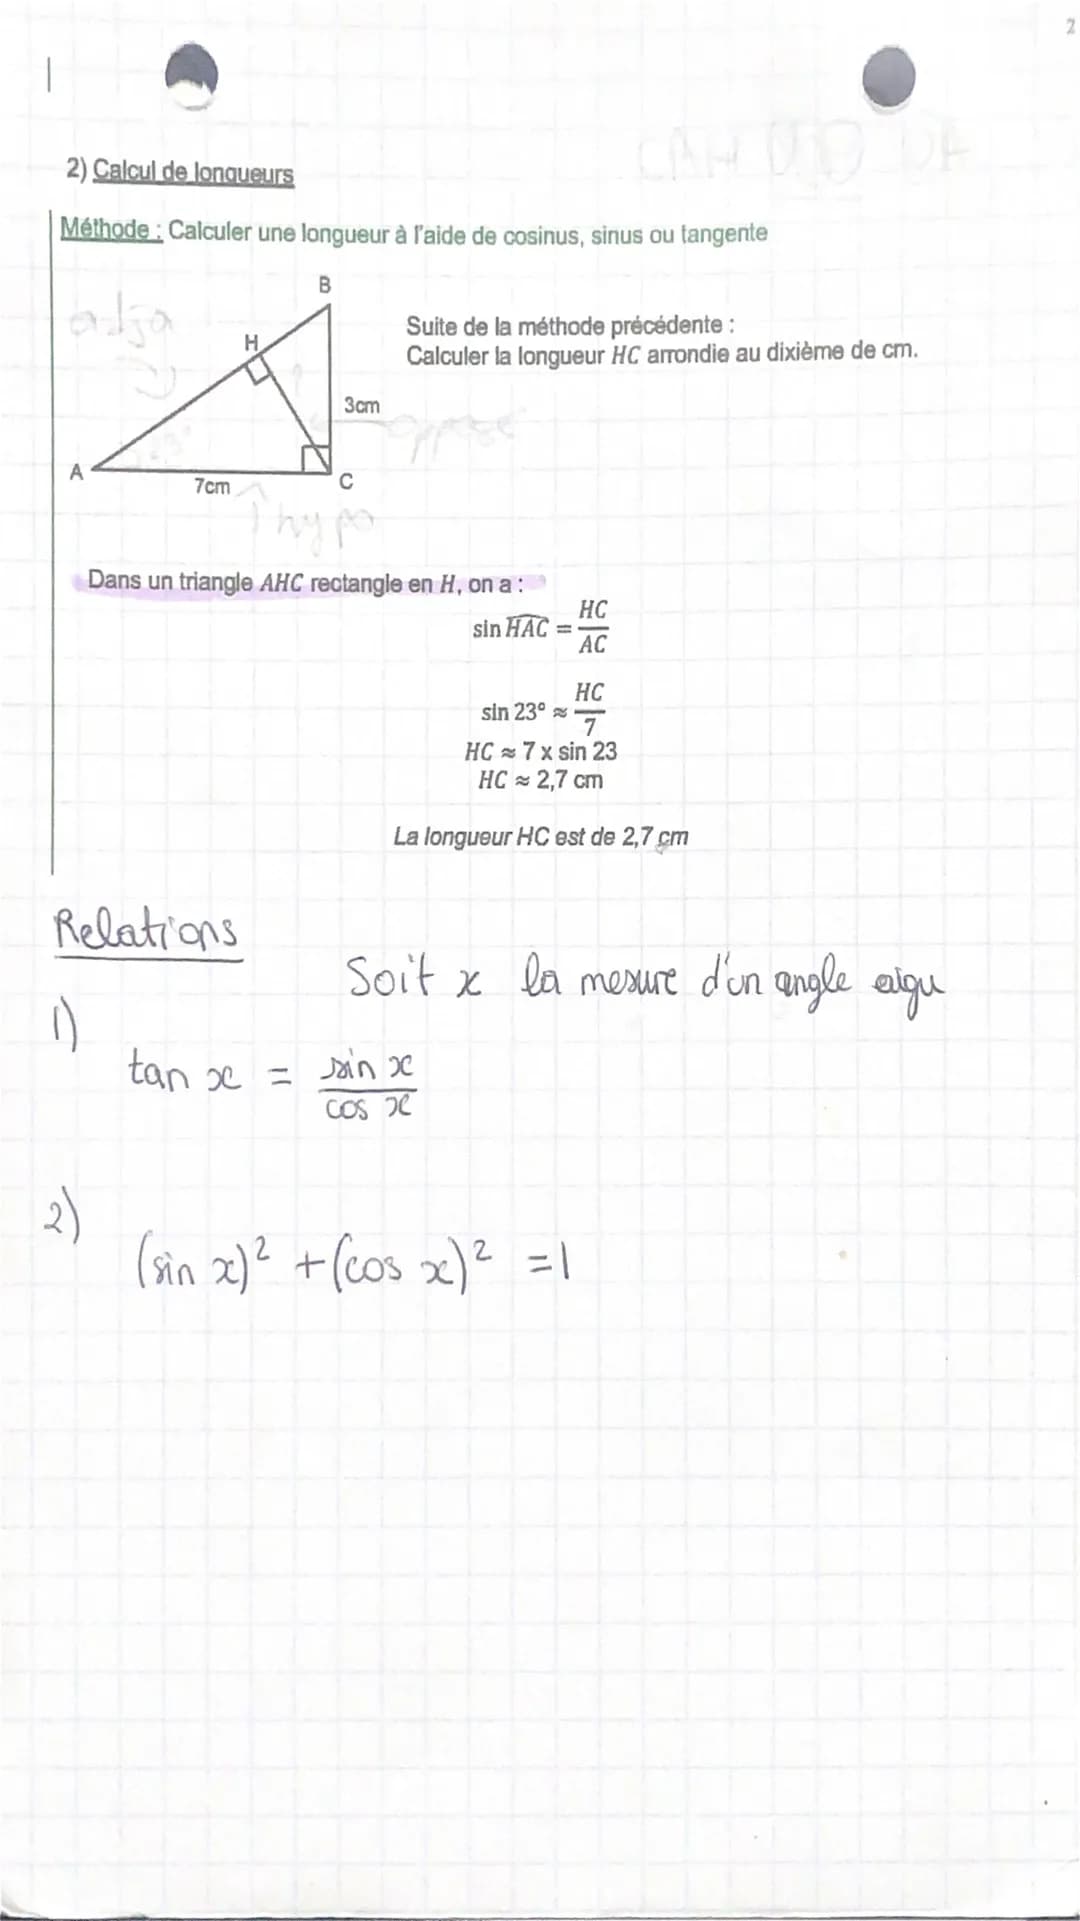 2
2) Calcul de longueurs
Méthode : Calculer une longueur à l'aide de cosinus, sinus ou tangente
B
adja
H
Suite de la méthode précédente :
Calculer la longueur HC arrondie au dixième de cm.
?
3cm
opposé
23°
A
7cm
C
hypo
Dans un triangle AHC rectangle en H, on a :
sin HAC = HC / AC
sin 23° ≈ HC / 7
HC ≈ 7 x sin 23
HC ≈ 2,7 cm
La longueur HC est de 2,7 cm
Relations
Soit x la mesure d'un angle aigu
1)
tan x = sin x / cos x
2)
(sin x)² + (cos x)² = 1